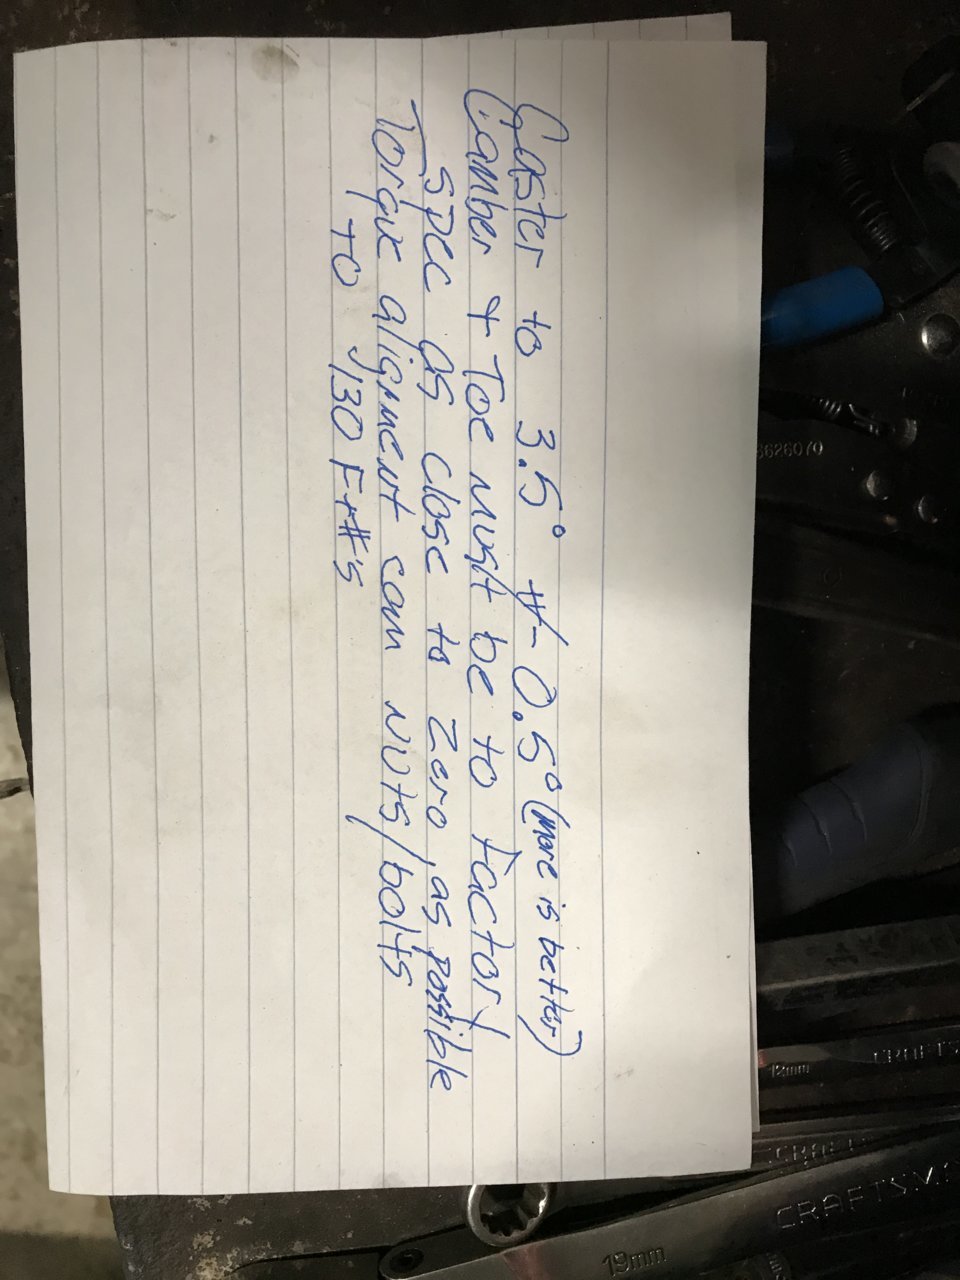 Caster to 3.5° +/- 0.5° (more is better)
Camber + Toe must be to factory
spec as close to zero as possible
Torque alignment cam nuts/bolts
to 130 Ft#'s
8626070
12mm
CRAFTS
CRAF
CRAFTSM
19mm